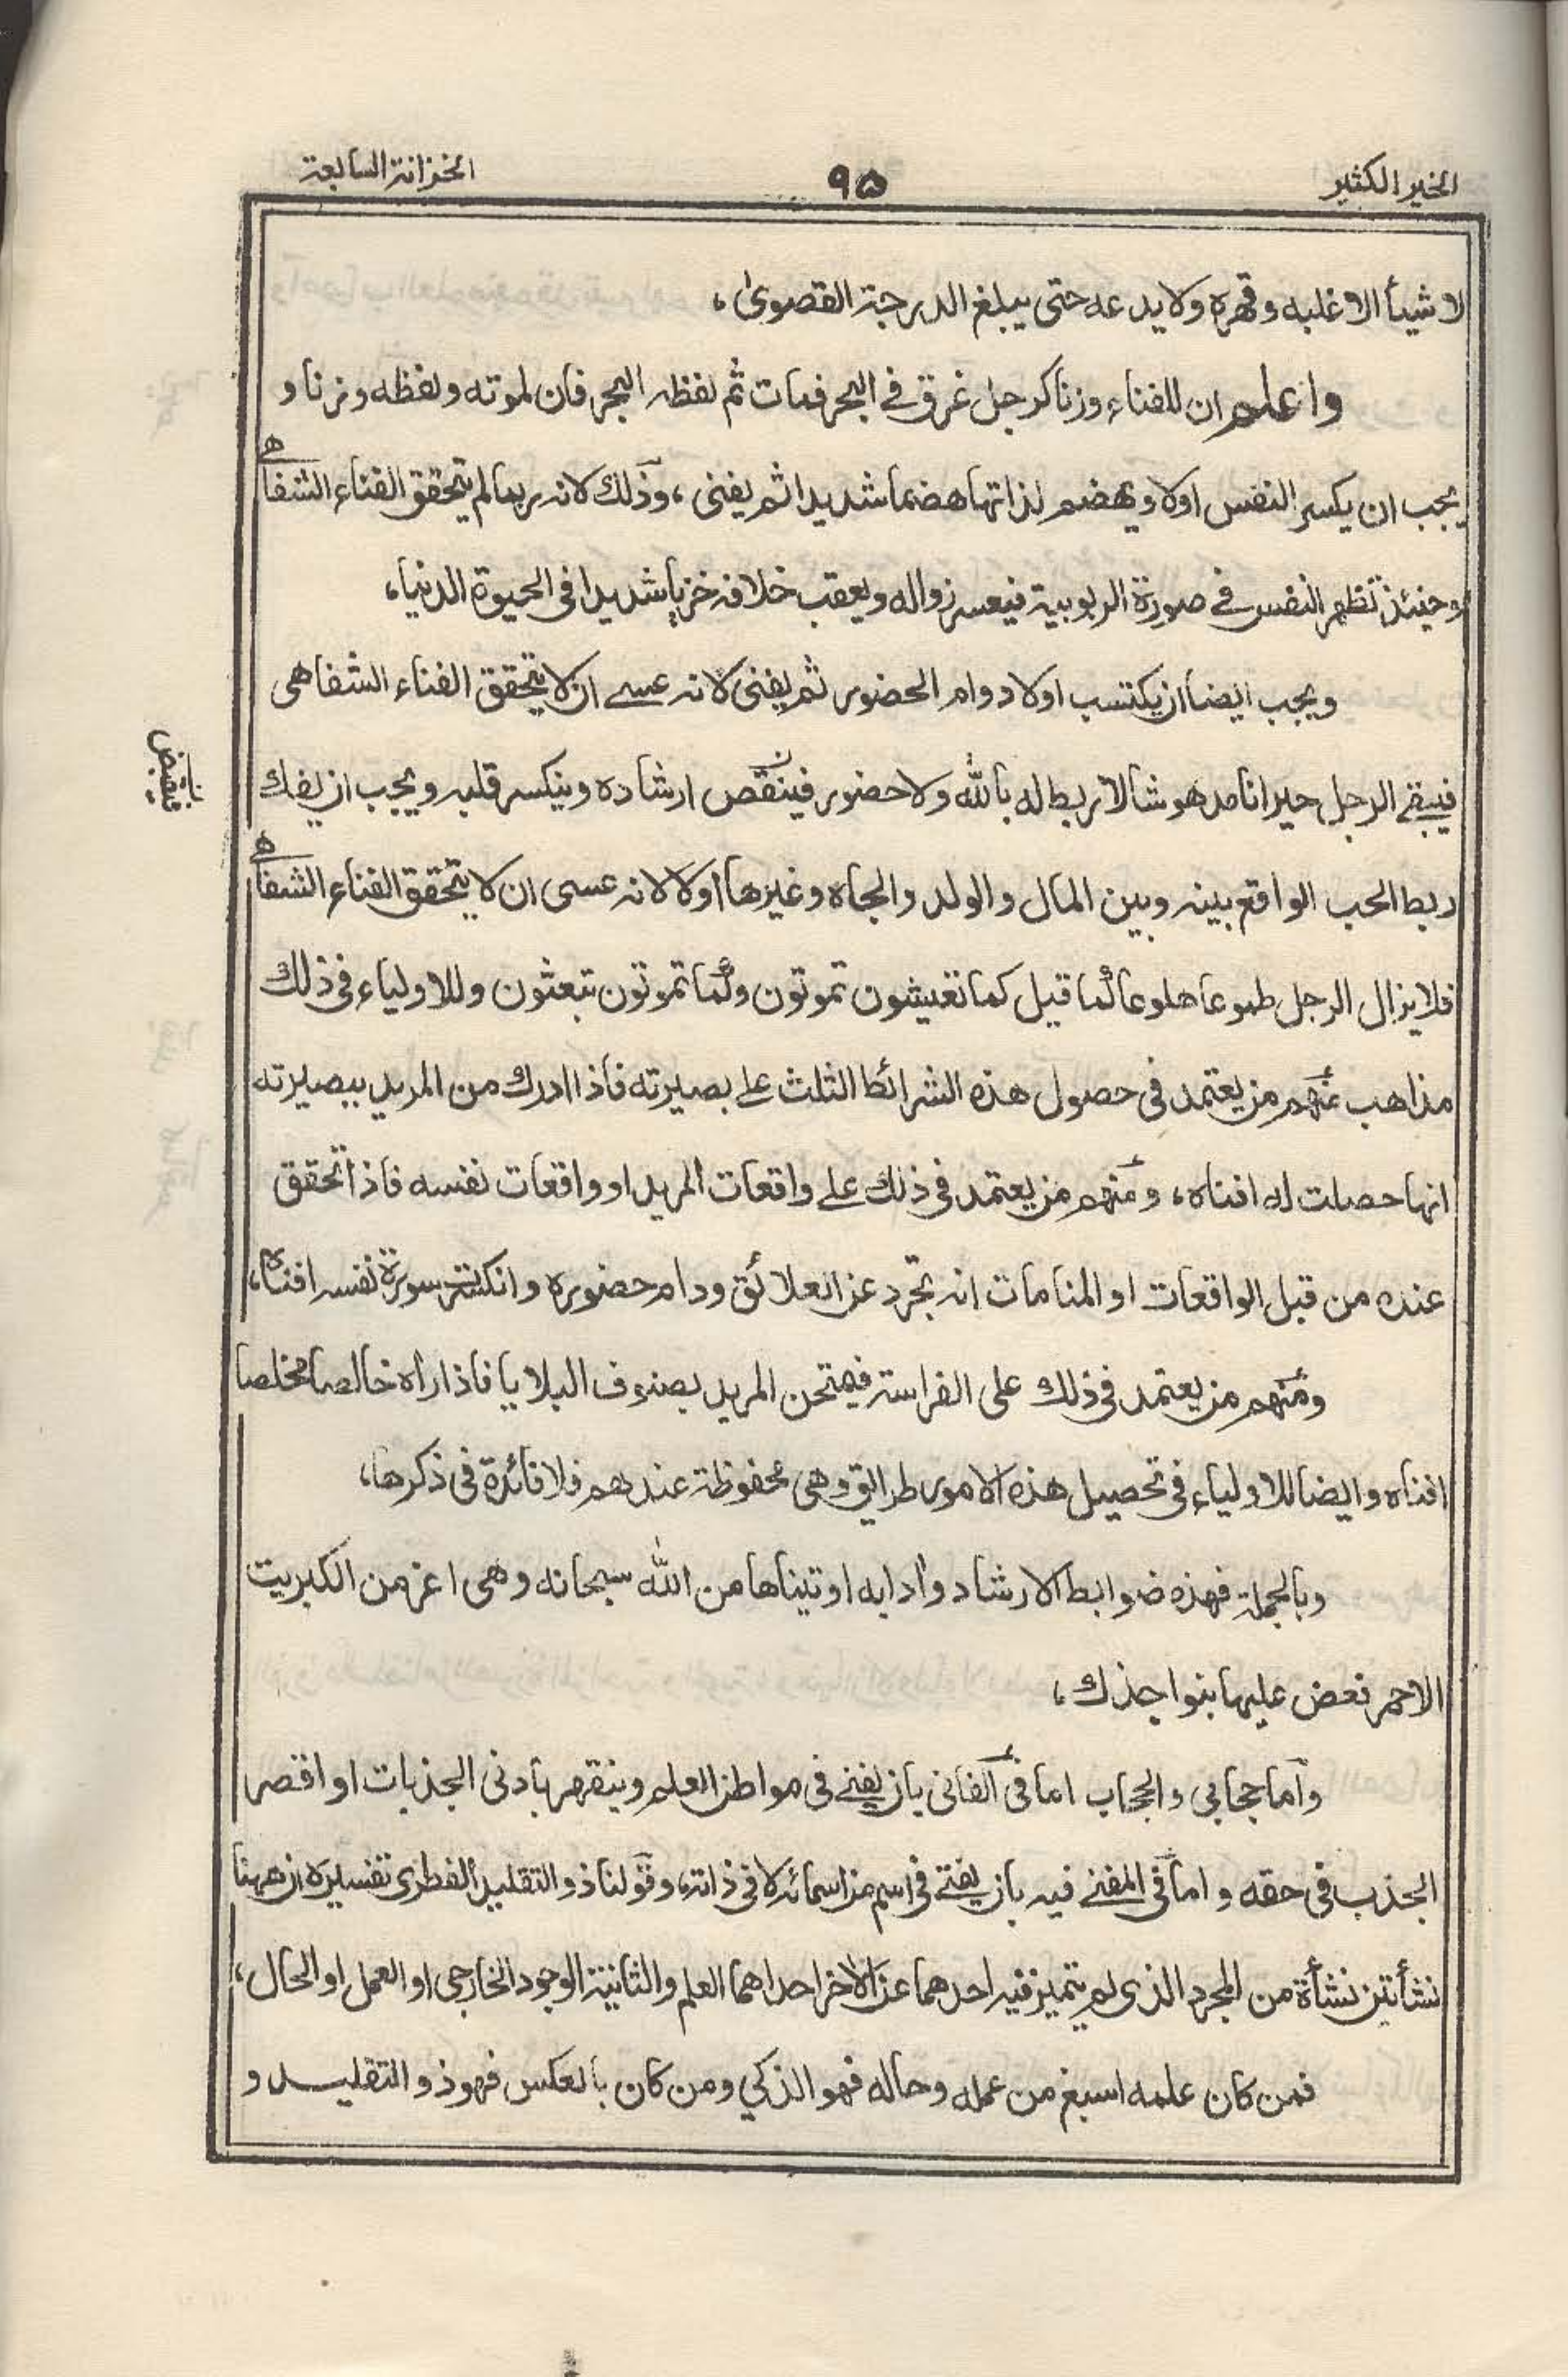 الخير الكثير
٩٥
الخزانة السابعة
لا شيأ الا غلبه وقهره ولا يدعه حتى يبلغ الدرجة القصوىٰ،
واعلم ان للفناء وزنا كرجل غرق في البحر فمات ثم لفظه البحر فان لموته ولفظه وزنا و
يجب ان يكسر النفس اولا ويهضم لذاتها هضما شديدا ثم يفنى، وذلك لانه ربما لم يتحقق الفناء الشفاهى
وحينئذ تظهر النفس فى صورة الربوبية فيعسر زواله ويعقب خلافه خزيا شديدا فى الحيوة الدنيا،
ويجب ايضا ان يكتسب اولا دوام الحضور ثم يفنى لانه عسى ان لا يتحقق الفناء الشفاهى
فيبقى الرجل حيرانا مدهوشا لا ربط له بالله ولا حضور فينقص ارشاده وينكسر قلبه ويجب ان يفك
ربط الحب الواقع بينه وبين المال والولد والجاه وغيرها اولا لانه عسى ان لا يتحقق الفناء الشفاهى
فلا يزال الرجل طموعا هلوعا لما قيل كما تعيشون تموتون وكما تموتون تبعثون وللاولياء فى ذلك
مذاهب منهم من يعتمد فى حصول هذه الشرائط الثلث على بصيرته فاذا ادرك من المريد ببصيرته
انها حصلت له افناه، ومنهم من يعتمد فى ذلك على واقعات المريد او واقعات نفسه فاذا تحقق
عنده من قبل الواقعات او المنامات انه تجرد عن العلائق ودام حضوره وانكسر سورة نفسه افناه،
ومنهم من يعتمد فى ذلك على الفراسة فيمتحن المريد بصنوف البلايا فاذا راه خالصا مخلصا
افناه وايضا للاولياء فى تحصيل هذه الامور طرايق وهى محفوظة عندهم فلا فائدة فى ذكرها،
وبالجملة فهذه ضوابط الارشاد وادابه اوتيناها من الله سبحانه وهى اعز من الكبريت
الاحمر فعض عليها بنواجذك،
واما حجابي والحجاب اما فى الفانى بان يفنى فى مواطن العلم وينقهر بادنى الجذبات او اقصر
الجذب فى حقه واما فى المفنى فيه بان يفنى فى اسم من اسمائه لا فى ذاته، وقولنا ذو التقليد الفطرى تفسيره ان ههنا
نشأتين نشأة من المجرد الذى لم يتميز فيه احدهما عن الاخر احداهما العلم والثانية الوجود الخارجى او العمل او الحال،
فمن كان علمه اسبغ من عمله وحاله فهو الذكي ومن كان بالعكس فهو ذو التقليد و